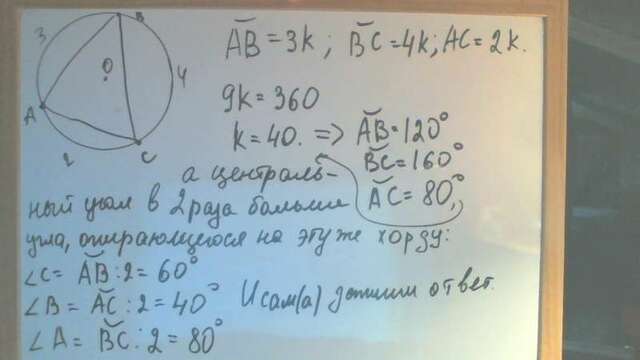 B
3
O
4
A
2
C
AB = 3k ; BC = 4k; AC = 2k.
9k = 360
k = 40. => AB = 120°
BC = 160°
AC = 80°,
а централь-
ный угол в 2 раза больше
угла, опирающегося на эту же хорду:
∠C = AB : 2 = 60°
∠B = AC : 2 = 40°
∠A = BC : 2 = 80°
И сам(а) допиши ответ.